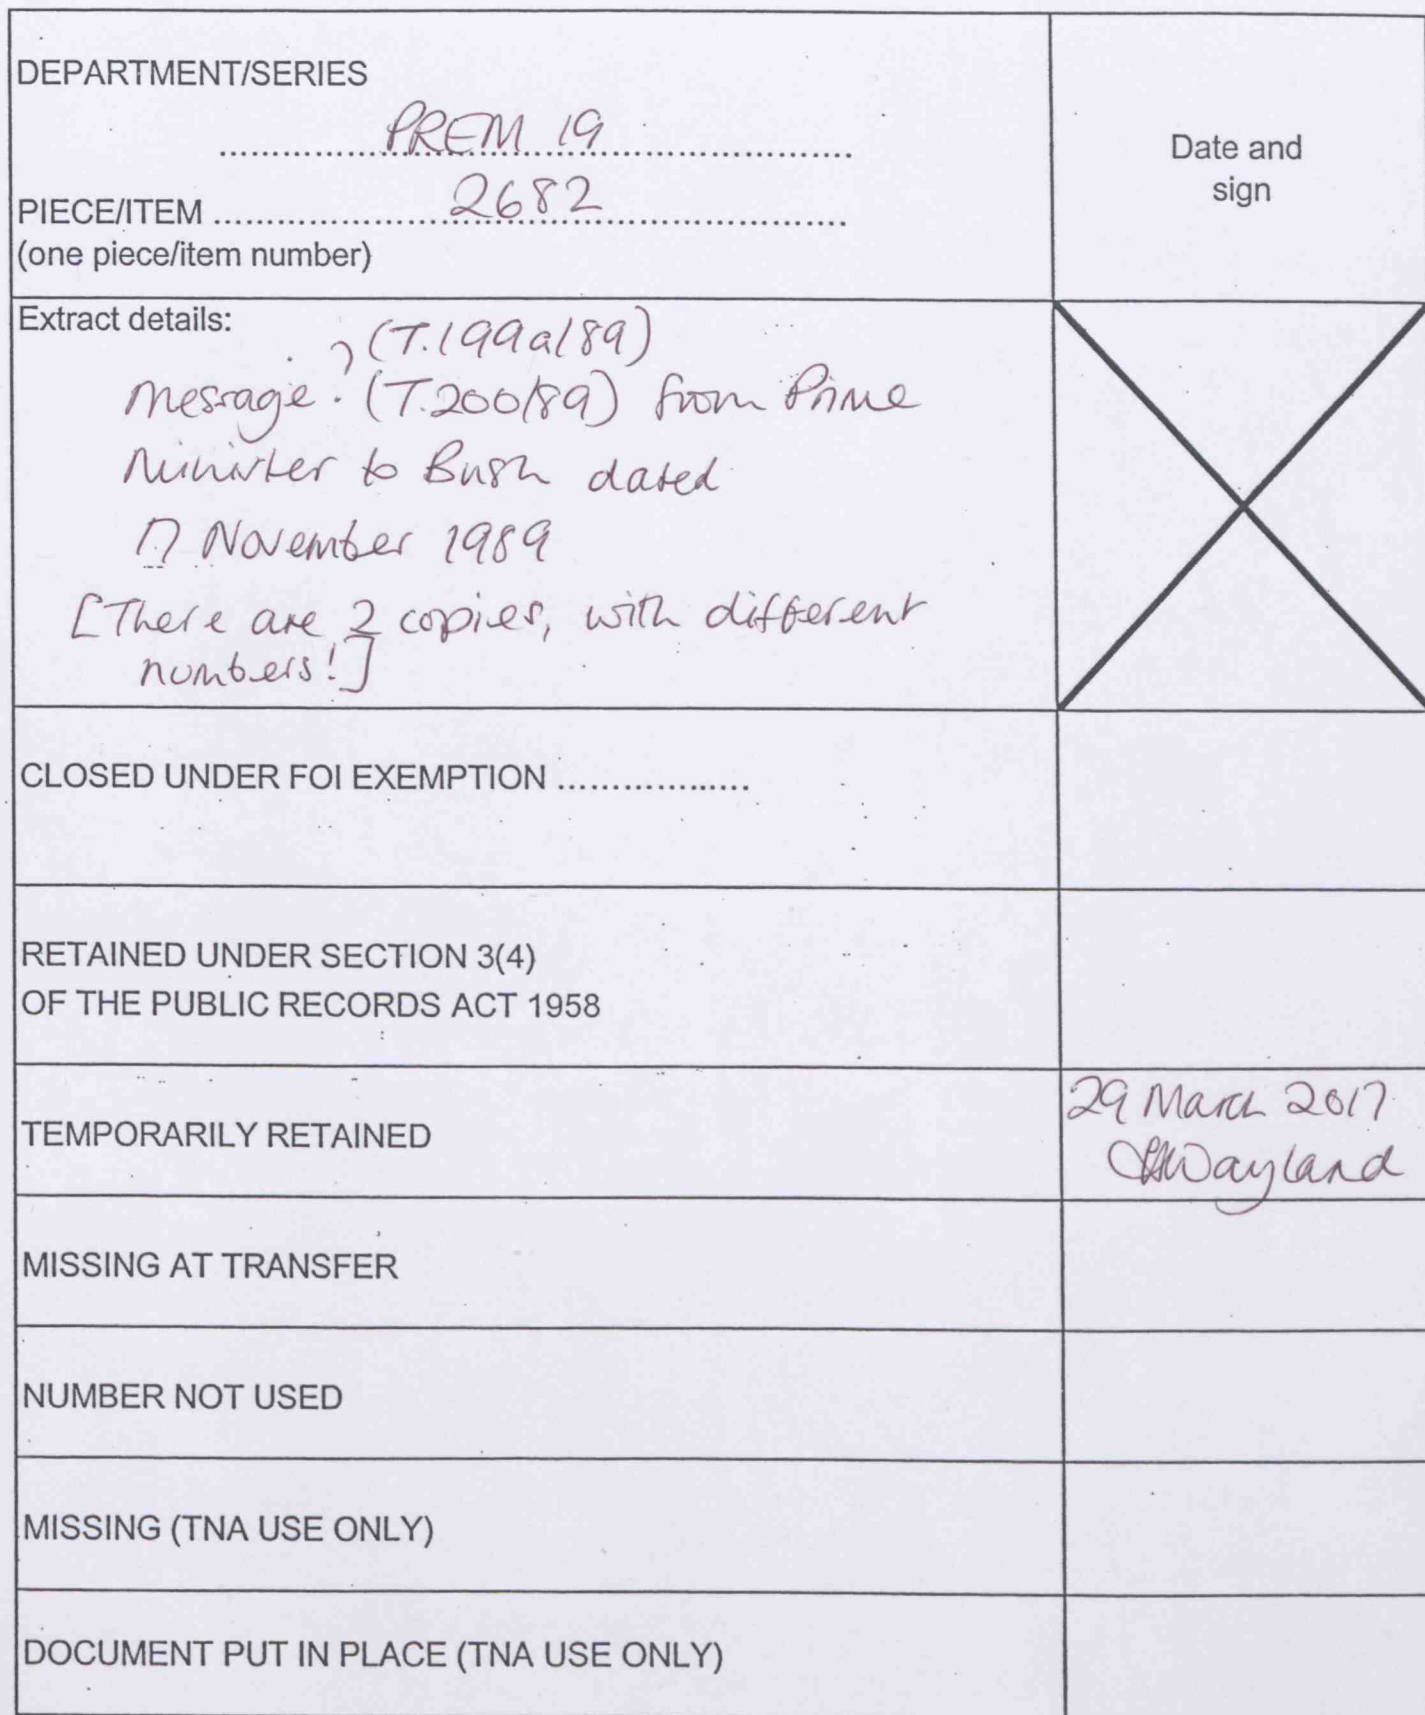 DEPARTMENT/SERIES
PREM 19
Date and
sign
PIECE/ITEM 2682
(one piece/item number)
Extract details:
(T.199a/89)
Message: (T.200/89) from Prime
Minister to Bush dated
17 November 1989
[There are 2 copies, with different
numbers!]
CLOSED UNDER FOI EXEMPTION ..................
RETAINED UNDER SECTION 3(4)
OF THE PUBLIC RECORDS ACT 1958
TEMPORARILY RETAINED
29 March 2017
Wayland
MISSING AT TRANSFER
NUMBER NOT USED
MISSING (TNA USE ONLY)
DOCUMENT PUT IN PLACE (TNA USE ONLY)